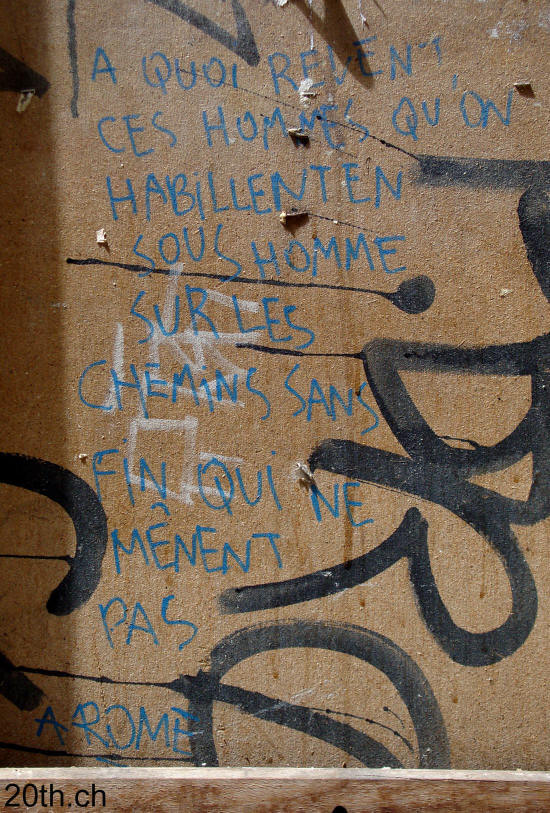 A QUOI REVENT
CES HOMMES QU'ON
HABILLENT EN
SOUS HOMME
SUR LES
CHEMINS SANS
FIN QUI NE
MÊNENT
PAS
A ROME
20th.ch